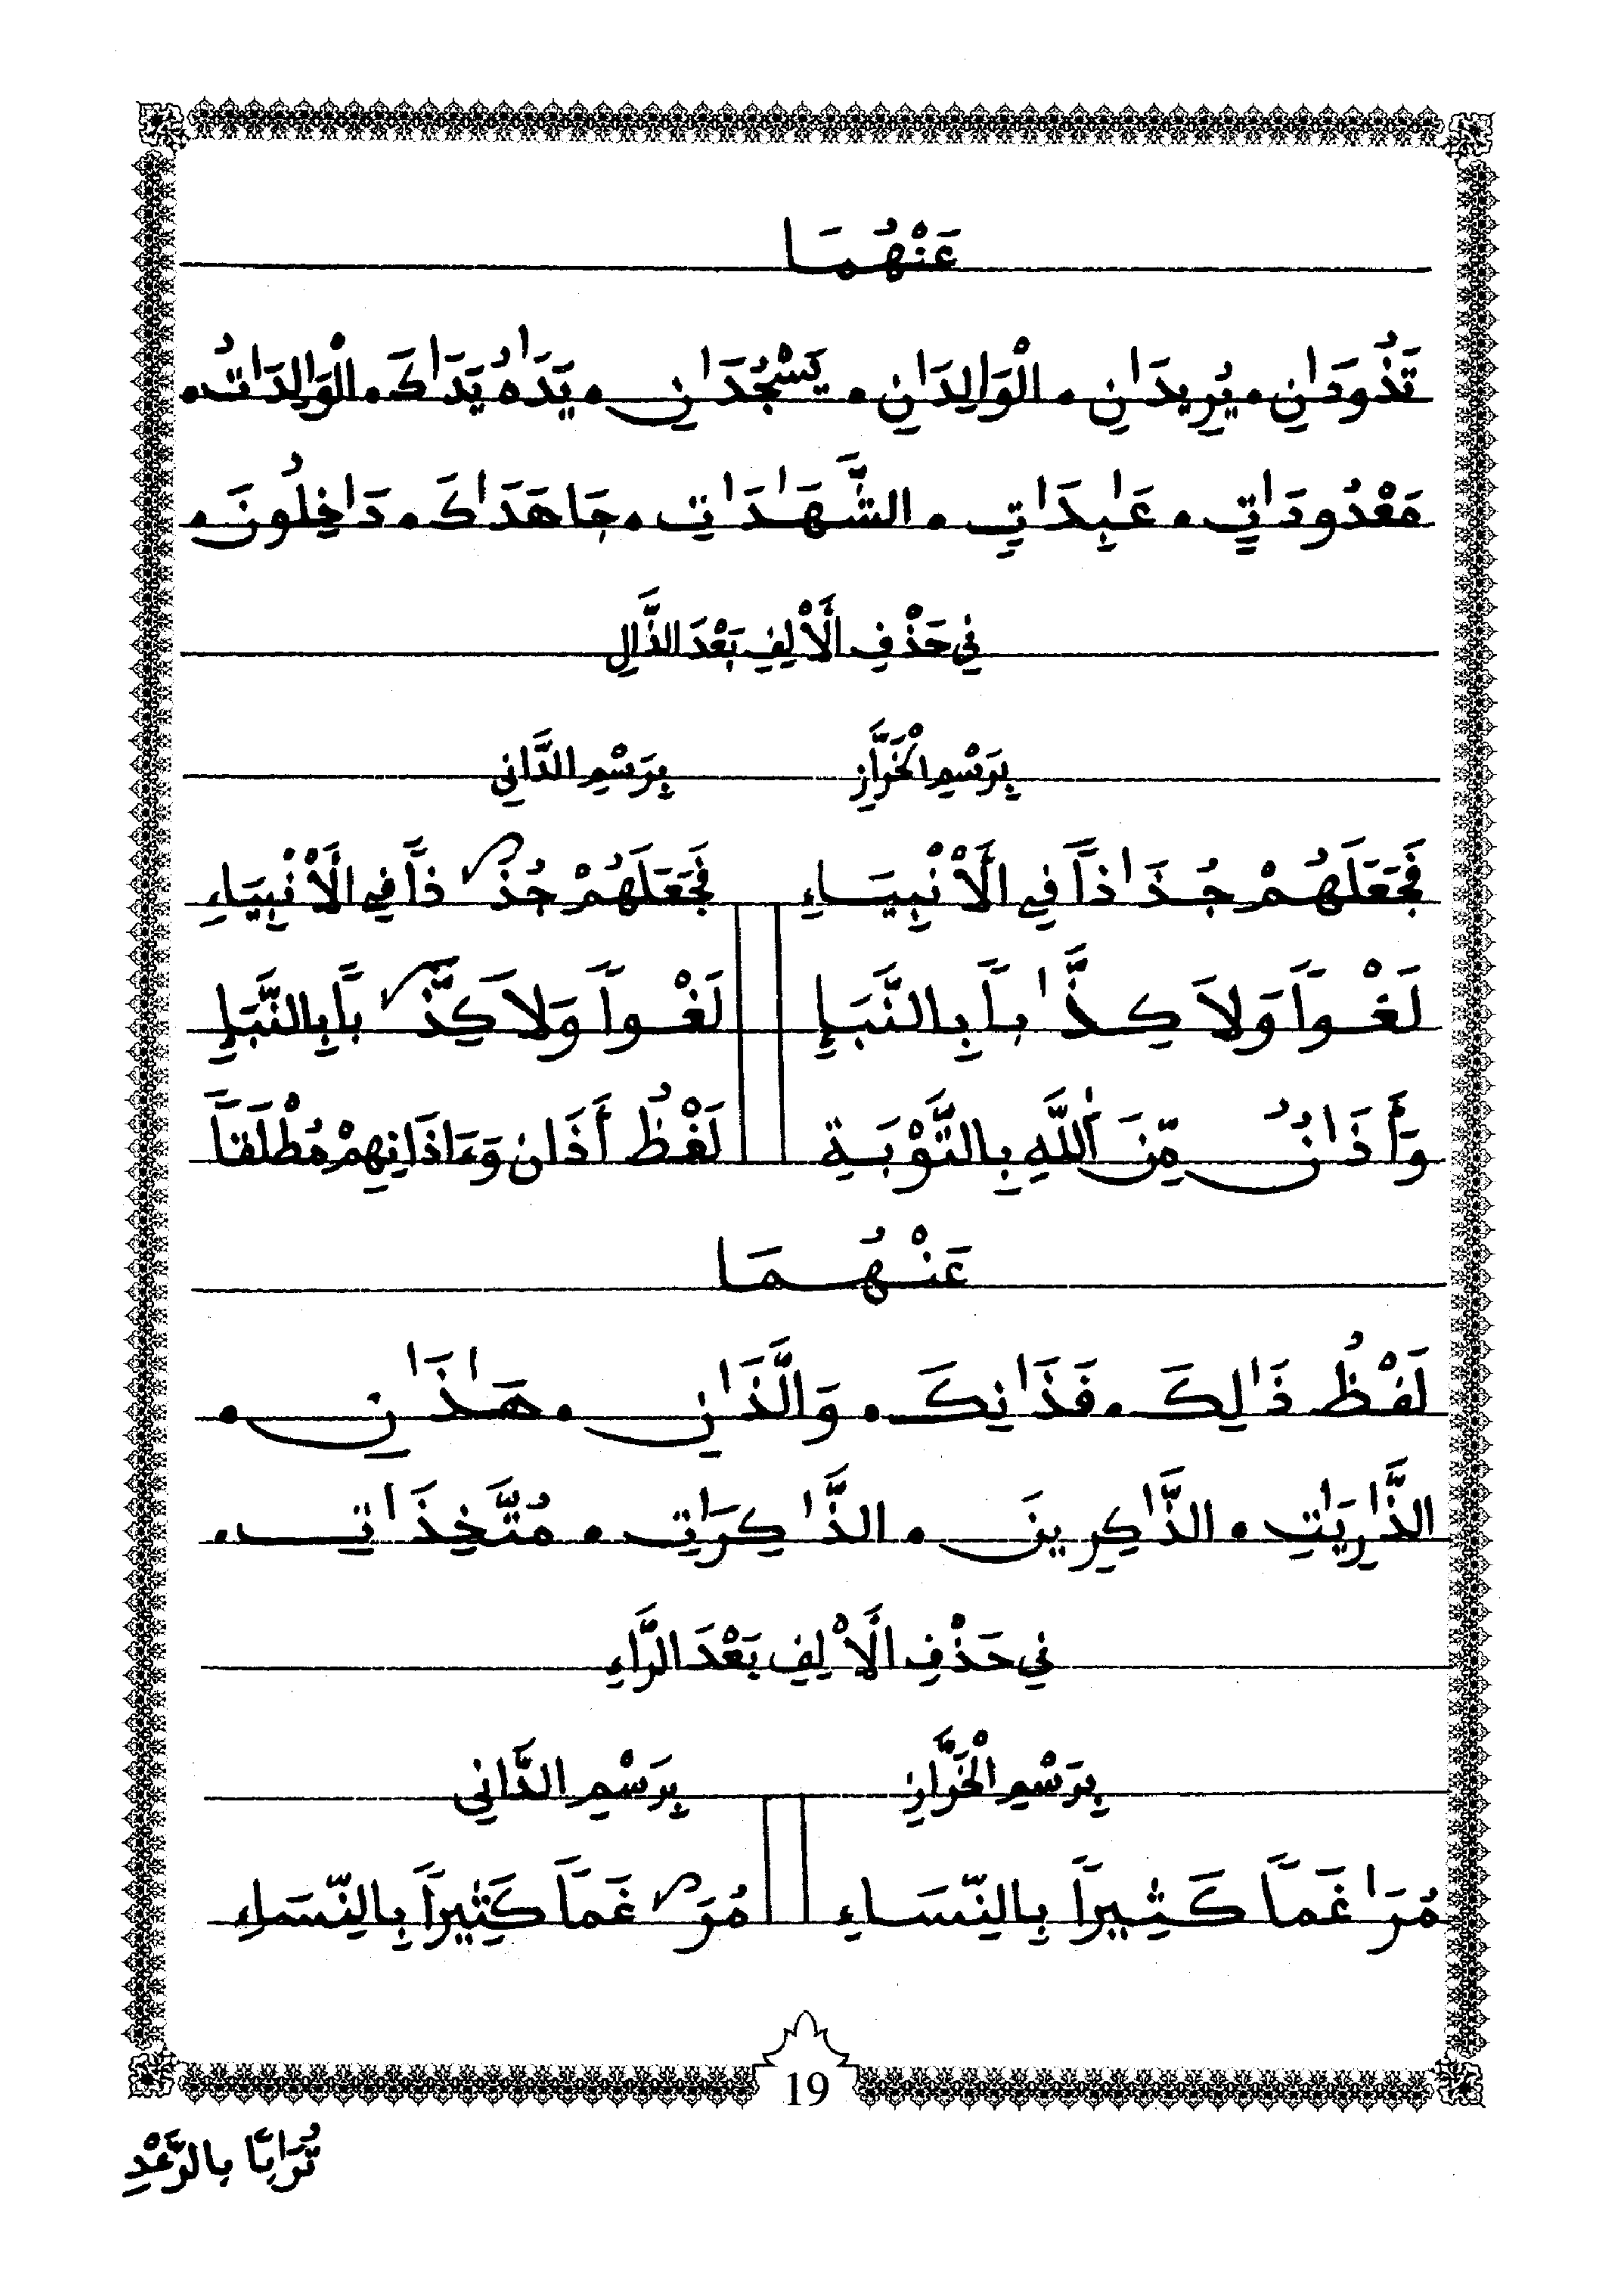 عَنْهُمَا
تَذُودَٰنِ • يُرِيدَٰنِ • الْوَٰلِدَٰنِ • يَسْجُدَٰنِ • يَدَٰهُ يَدَٰكَ • الْوَٰلِدَٰتُ •
مَعْدُودَٰتٍ • عَٰبِدَٰتٍ • الشَّهَٰدَٰتِ • جَٰهَدَٰكَ • دَٰخِلُونَ •
فِي حَذْفِ الْأَلِفِ بَعْدَ الذَّالِ
بِرَسْمِ الْخَرَّازِ بِرَسْمِ الدَّانِي
فَجَعَلَهُمْ جُذَٰذاً فِي الْأَنْبِيَاءِ فَجَعَلَهُمْ جُذَاذاً فِي الْأَنْبِيَاءِ
لَغْواً وَلَا كِذَّٰباً بِالنَّبَإِ لَغْواً وَلَا كِذَّاباً بِالنَّبَإِ
وَأَذَٰنٌ مِّنَ اَللَّهِ بِالتَّوْبَةِ لَفْظُ أَذَان وَءَاذَانِهِمْ مُطْلَقاً
عَنْهُمَا
لَفْظُ ذَٰلِكَ • فَذَٰنِكَ • وَالَّذَٰنِ • هَٰذَٰنِ •
الذَّٰرِيَٰتِ • الذَّٰكِرِينَ • الذَّٰكِرَٰتِ • مُتَّخِذَٰتِ •
فِي حَذْفِ الْأَلِفِ بَعْدَ الرَّاءِ
بِرَسْمِ الْخَرَّازِ بِرَسْمِ الدَّانِي
مُرَٰغَماً كَثِيراً بِالنِّسَاءِ مُرَاغَماً كَثِيراً بِالنِّسَاءِ
19
تُرَٰبًا بِالرَّعْدِ